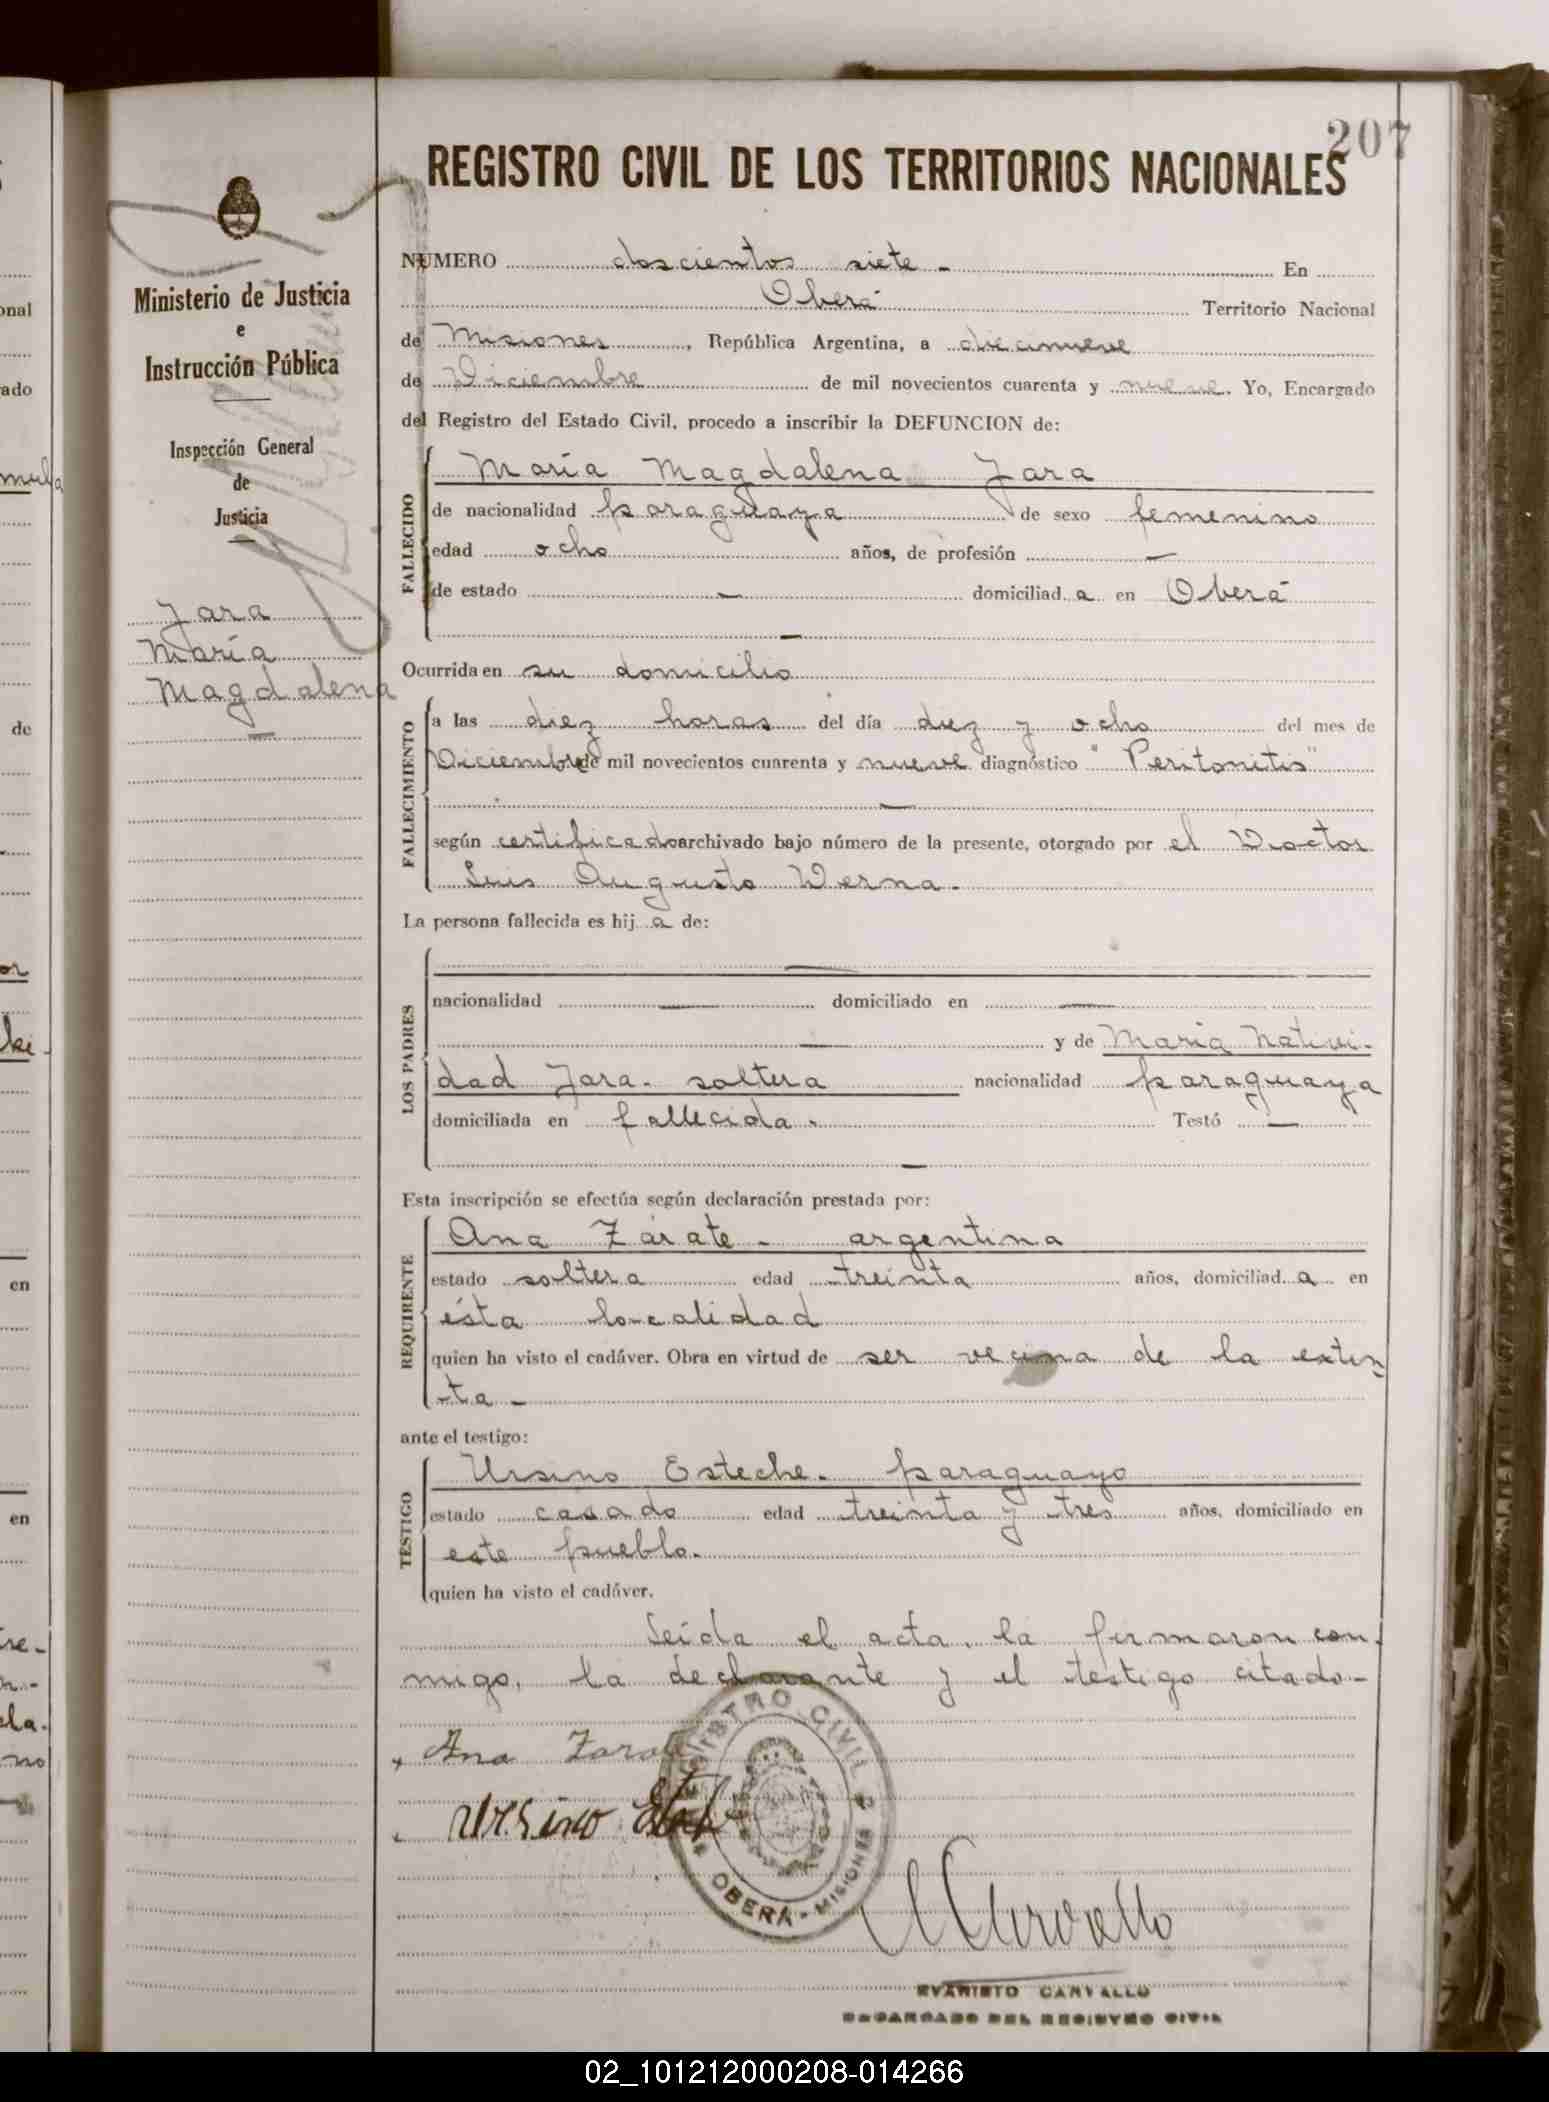 207
REGISTRO CIVIL DE LOS TERRITORIOS NACIONALES
Ministerio de Justicia
e
Instrucción Pública
Inspección General
de
Justicia
Jara
María
Magdalena
NUMERO doscientos siete - En
Oberá Territorio Nacional
de Misiones, República Argentina, a diecinueve
de Diciembre de mil novecientos cuarenta y nueve. Yo, Encargado
del Registro del Estado Civil, procedo a inscribir la DEFUNCION de:
FALLECIDO
María Magdalena Jara
de nacionalidad paraguaya de sexo femenino
edad ocho años, de profesión —
de estado — domiciliad a en Oberá
—
Ocurrida en su domicilio
FALLECIMIENTO
a las diez horas del día diez y ocho del mes de
Diciembre de mil novecientos cuarenta y nueve diagnóstico "Peritonitis"
—
según certificado archivado bajo número de la presente, otorgado por el Doctor
Luis Augusto Derna.
La persona fallecida es hij a de:
LOS PADRES
—
nacionalidad — domiciliado en —
— y de María Nativi-
dad Jara. soltera nacionalidad paraguaya
domiciliada en fallecida. Testó —
—
Esta inscripción se efectúa según declaración prestada por:
REQUIRENTE
Ana Zárate. argentina
estado soltera edad treinta años, domiciliad a en
ésta localidad
quien ha visto el cadáver. Obra en virtud de ser vecina de la extin-
ta -
ante el testigo:
TESTIGO
Ursino Esteche. paraguayo
estado casado edad treinta y tres años, domiciliado en
este pueblo.
quien ha visto el cadáver.
Leída el acta, la firmaron con-
migo, la declarante y el testigo citado-
Ana Zarate
Ursino
REGISTRO CIVIL
OBERÁ - MISIONES
Carvallo
EVARISTO CARVALLO
ENCARGADO DEL REGISTRO CIVIL
02_101212000208-014266